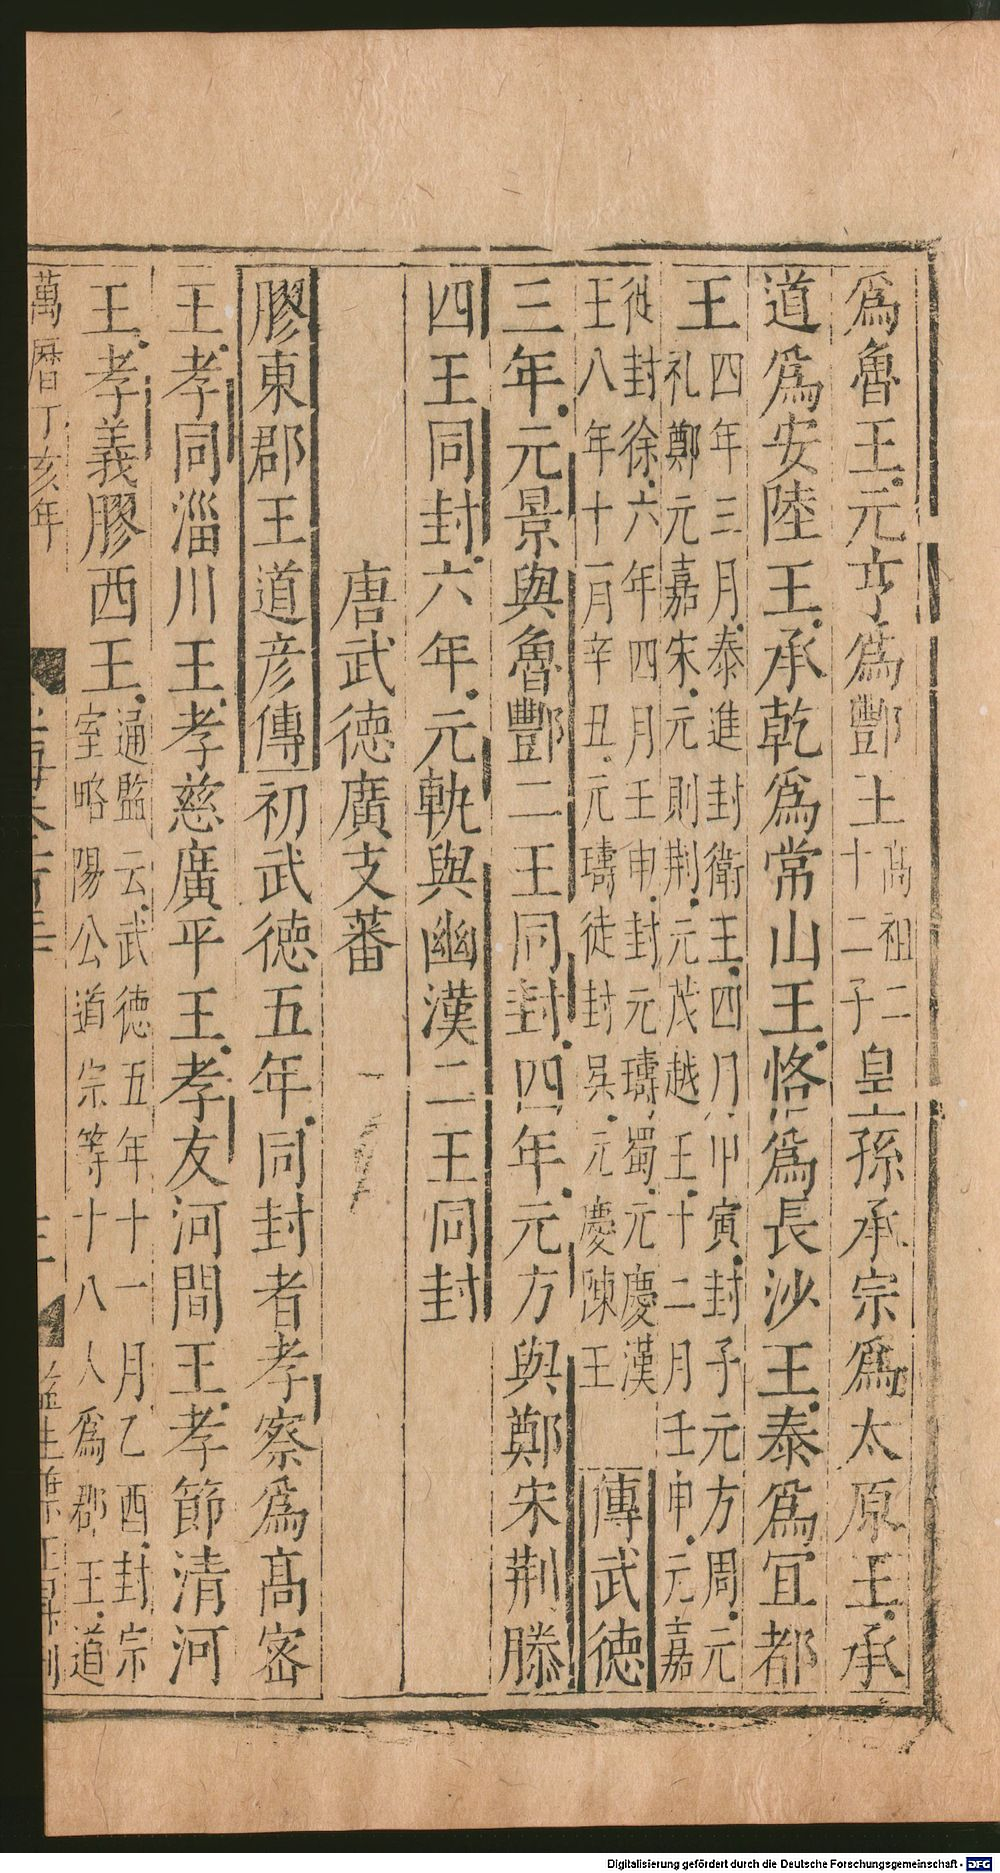 爲魯王元亨爲酆王高祖二十二子皇孫承宗爲太原王承
道爲安陸王承乾爲常山王恪爲長沙王泰爲宜都
王四年三月泰進封衛王四月甲寅封子元方周元礼鄭元嘉宋元則荆元茂越王十二月壬申元嘉
徙封徐六年四月壬申封元璹蜀元慶漢王八年十一月辛丑元璹徒封吳元慶陳王傳武德
三年元景與魯酆二王同封四年元方與鄭宋荆滕
四王同封六年元軌與幽漢二王同封
唐武德廣支蕃
膠東郡王道彦傳初武德五年同封者孝察爲高密
王孝同淄川王孝慈廣平王孝友河間王孝節清河
王孝義膠西王通監云武德五年十一月乙酉封宗室略陽公道宗等十八人爲郡王道
萬曆丁亥年